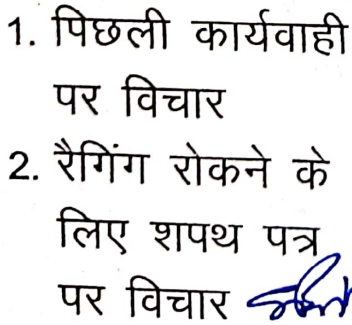 1. पिछली कार्यवाही
पर विचार
2. रैगिंग रोकने के
लिए शपथ पत्र
पर विचार